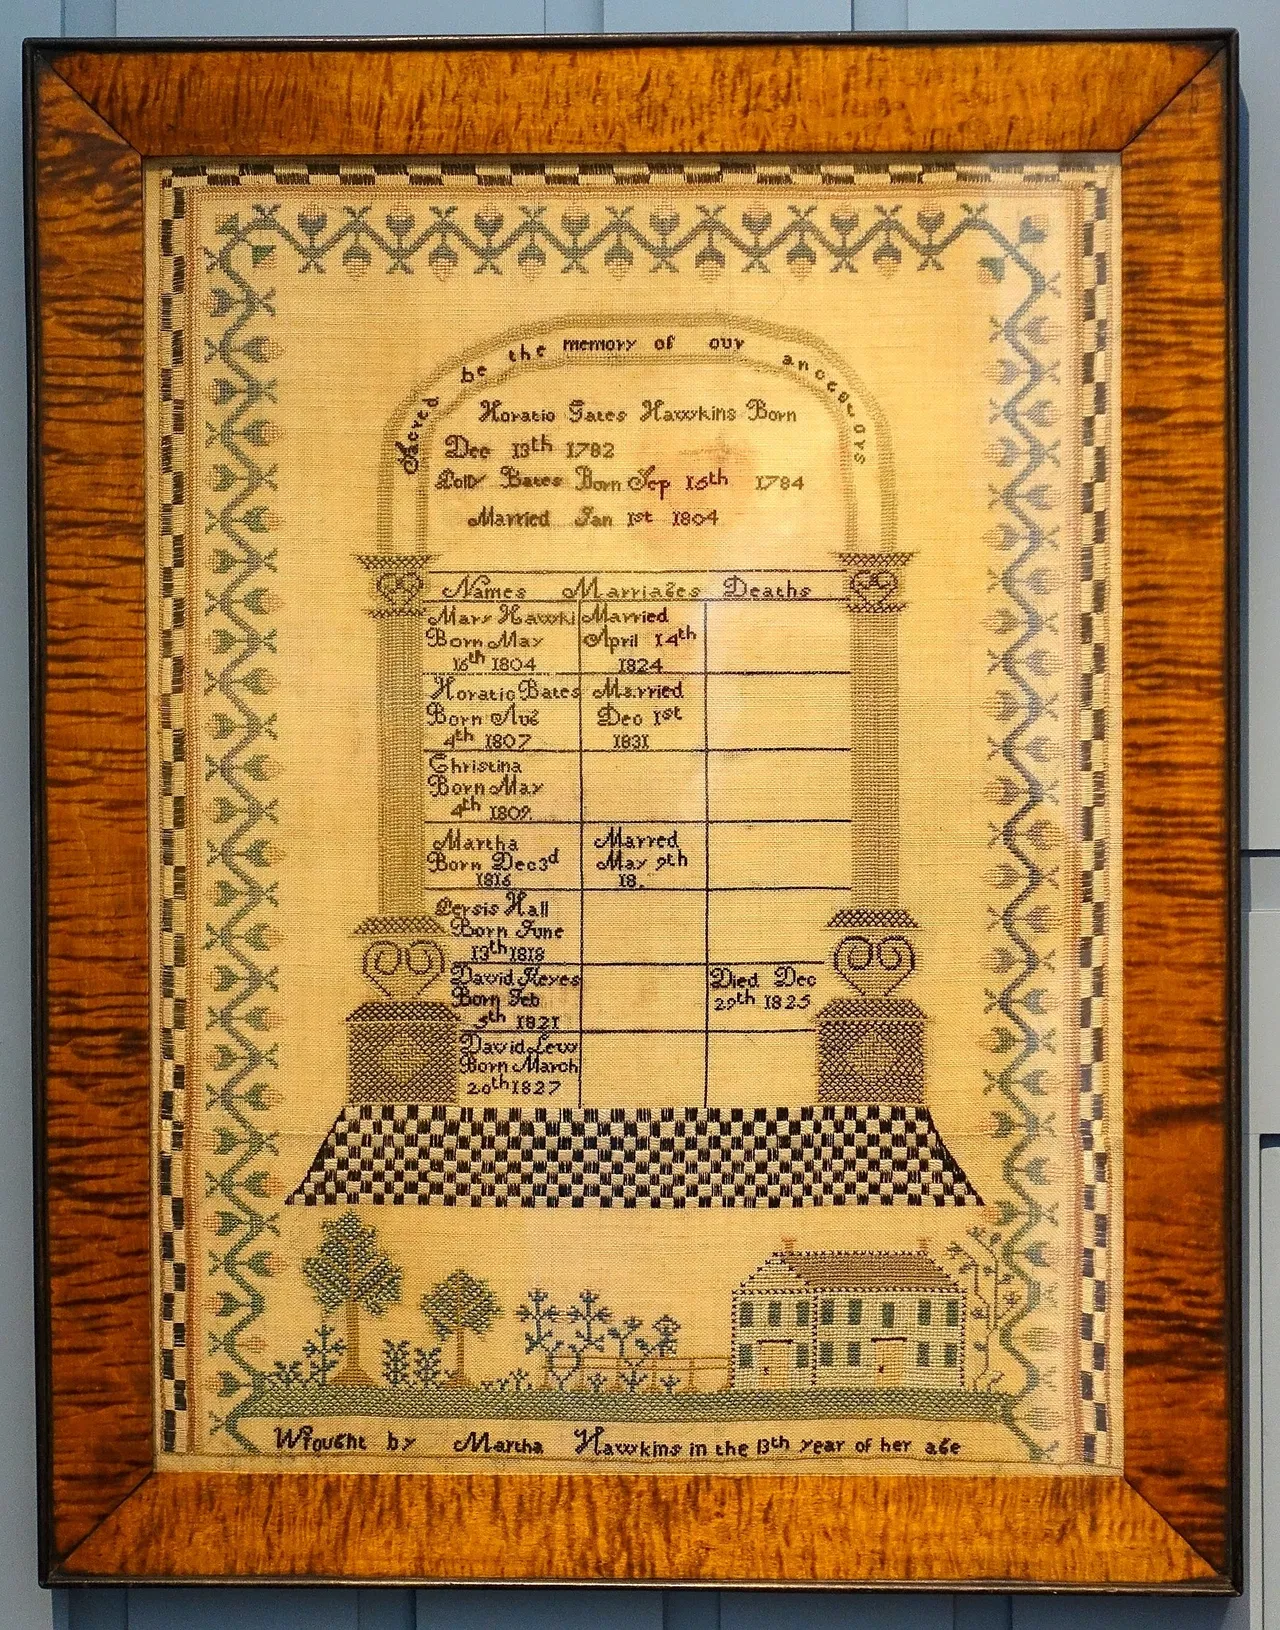 Sacred be the memory of our ancecuors
Horatio Gates Hawkins Born
Dec 13th 1782
Polly Bates Born Sep 15th 1784
Married Jan 1st 1804
Names Marriages Deaths
Mary Hawki Married
Born May April 14th
16th 1804 1824
Horatio Bates Married
Born Aug Dec 1st
4th 1807 1831
Christina
Born May
4th 1809
Martha Marred
Born Dec 3d May 9th
1816 18
Persis Hall
Born June
13th 1818
David Keyes Died Dec
Born Feb 29th 1825
5th 1821
David Lew
Born March
20th 1827
Wrought by Martha Hawkins in the 13th year of her age